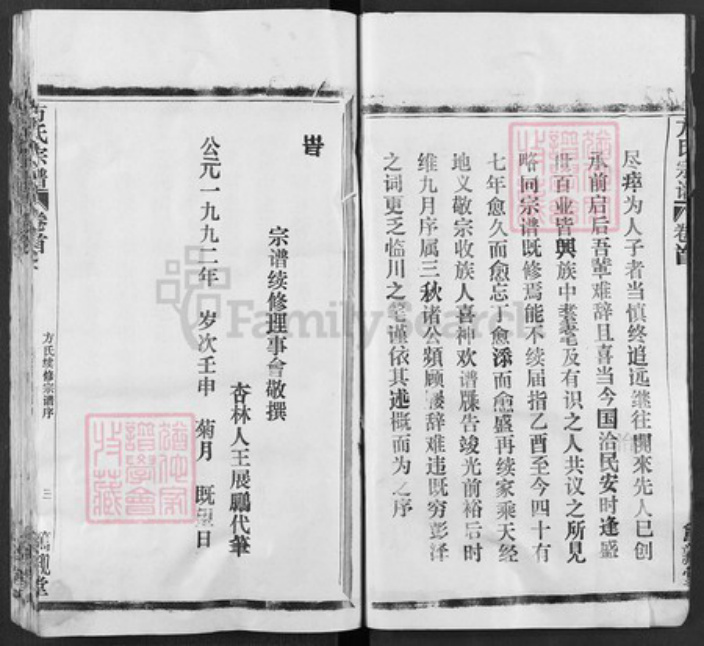 方氏宗谱
卷首
尽瘁为人子者当慎终追远继往開來先人已创
承前启后吾輩难辞且喜当今国治民安时逢盛
世百业皆興族中耄耋及有识之人共议之所見
略同宗谱既修焉能不续届指乙酉至今四十有
七年愈久而愈忘丁愈添而愈盛再续家乘天经
地义敬宗收族人喜神欢谱牒告竣光前裕后时
维九月序属三秋诸公頻顾屡辞难违既穷彭泽
之词更乏临川之笔谨依其述概而为之序
旹
公元一九九二年 岁次壬申 菊月 既望日
宗谱续修理事會敬撰
杏林人王展鵬代筆
方氏宗谱
卷首
方氏续修宗谱序
三
FamilySearch